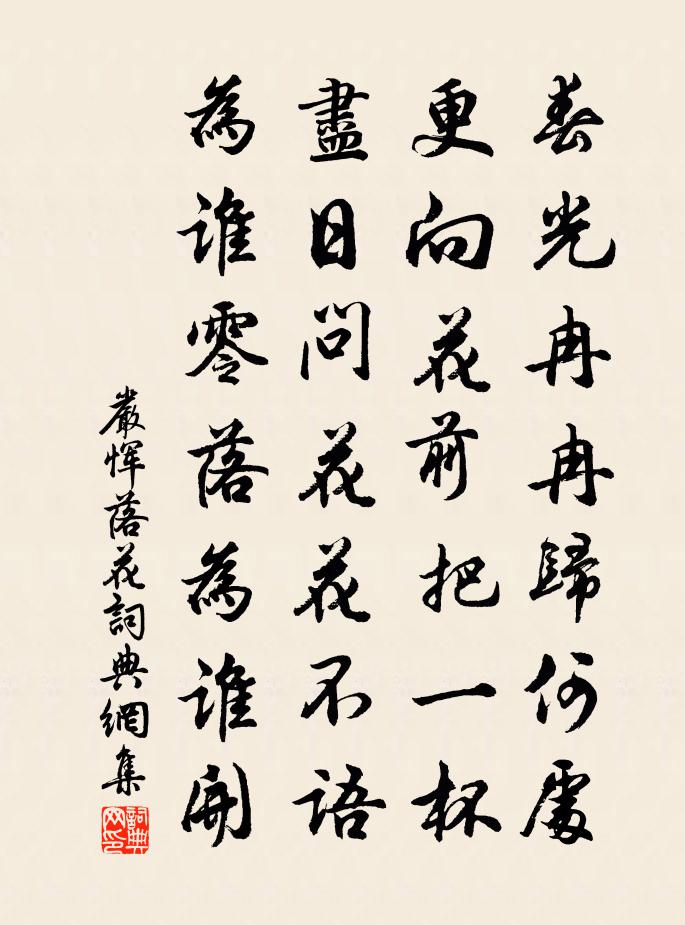 春光冉冉歸何處
更向花前把一杯
盡日問花花不語
為誰零落為誰開
嚴惲落花詞典網集
詞典網印